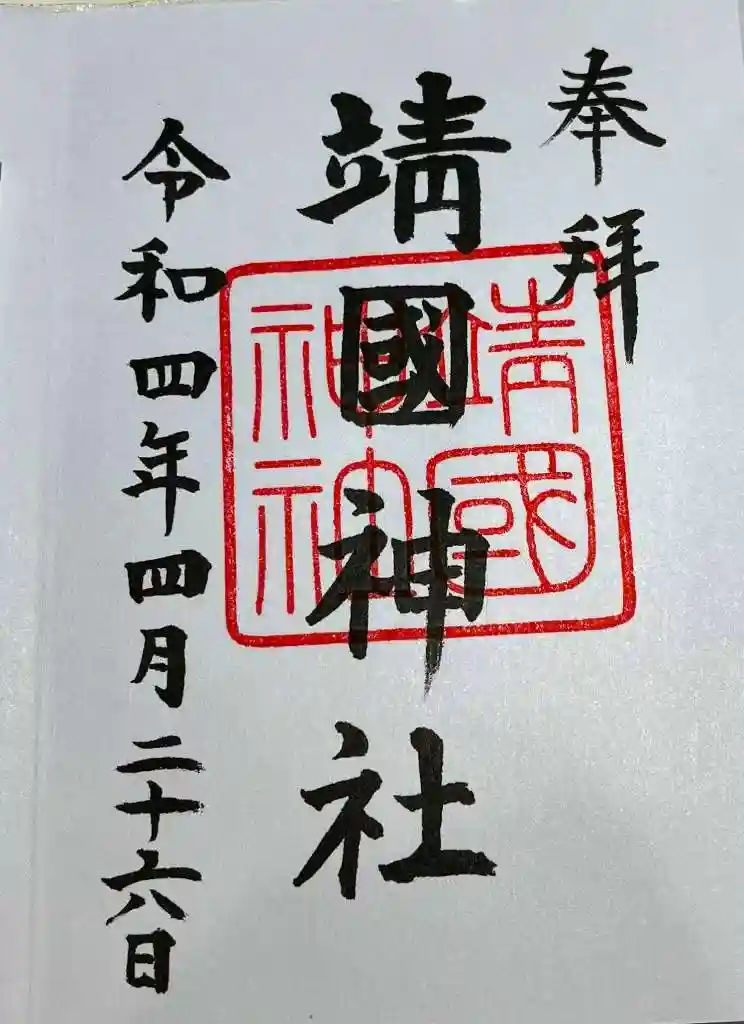 奉拝
靖國神社
令和四年四月二十六日
靖國
神社